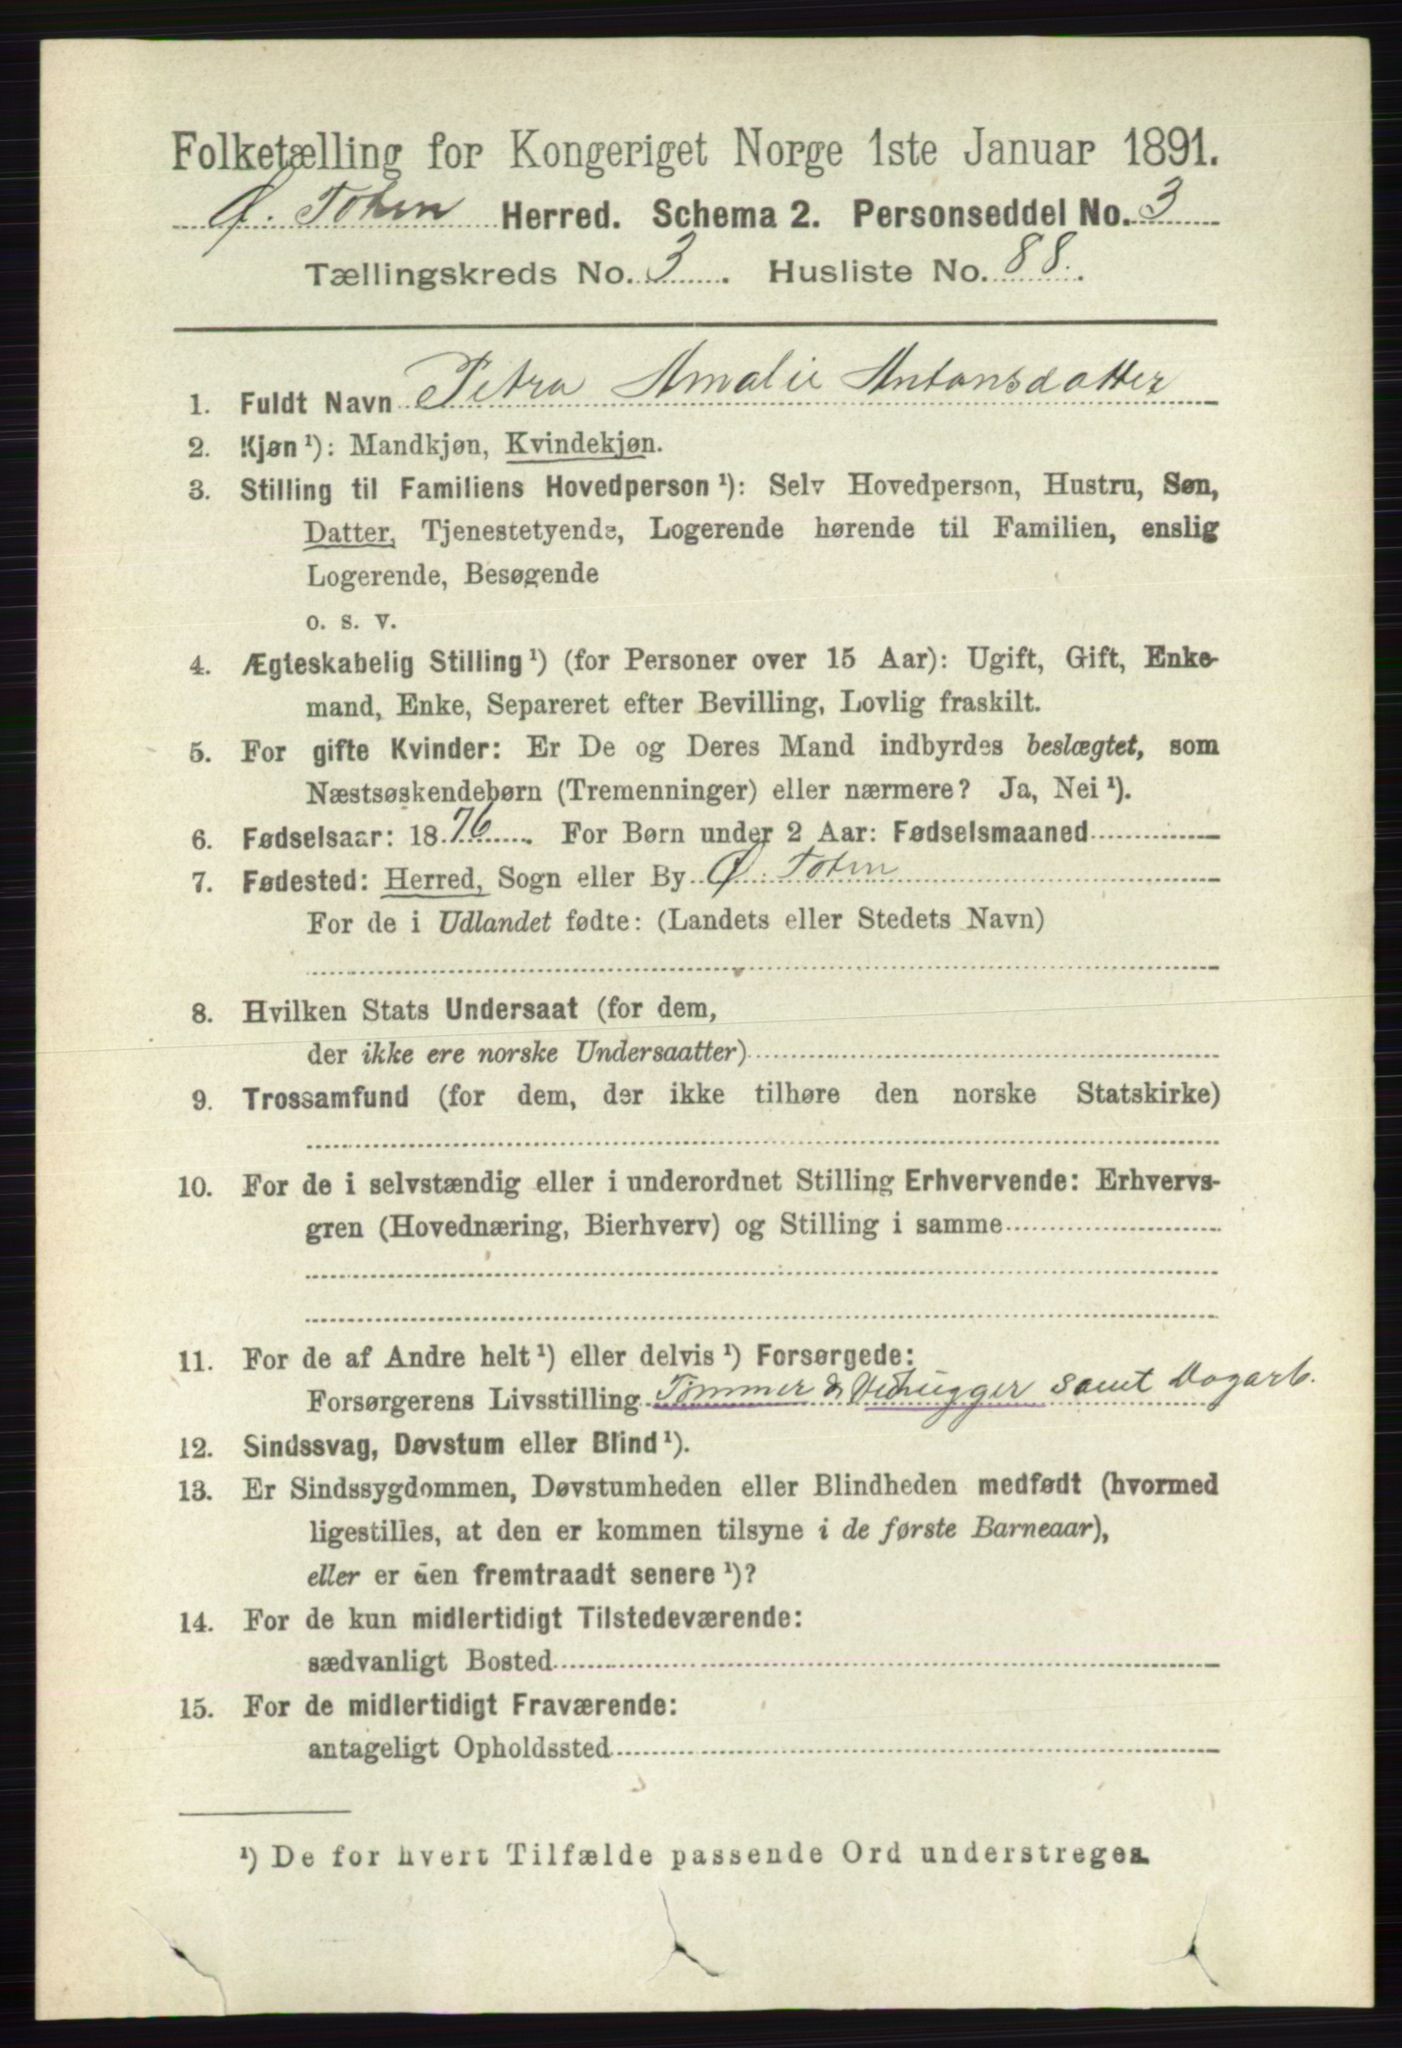 Folketælling for Kongeriget Norge 1ste Januar 1891.
Ø. Toten Herred. Schema 2. Personseddel No. 3
Tællingskreds No. 3. Husliste No. 88.
1. Fuldt Navn Petra Amalie Antonsdatter
2. Kjøn ¹): Mandkjøn, Kvindekjøn.
3. Stilling til Familiens Hovedperson ¹): Selv Hovedperson, Hustru, Søn,
Datter, Tjenestetyende, Logerende hørende til Familien, enslig
Logerende, Besøgende
o. s. v.
4. Ægteskabelig Stilling ¹) (for Personer over 15 Aar): Ugift, Gift, Enke-
mand, Enke, Separeret efter Bevilling, Lovlig fraskilt.
5. For gifte Kvinder: Er De og Deres Mand indbyrdes beslægtet, som
Næstsøskendebørn (Tremenninger) eller nærmere? Ja, Nei ¹).
6. Fødselsaar: 1876. For Børn under 2 Aar: Fødselsmaaned
7. Fødested: Herred, Sogn eller By Ø. Toten
For de i Udlandet fødte: (Landets eller Stedets Navn)
8. Hvilken Stats Undersaat (for dem,
der ikke ere norske Undersaatter)
9. Trossamfund (for dem, der ikke tilhøre den norske Statskirke)
10. For de i selvstændig eller i underordnet Stilling Erhvervende: Erhvervs-
gren (Hovednæring, Bierhverv) og Stilling i samme
11. For de af Andre helt ¹) eller delvis ¹) Forsørgede:
Forsørgerens Livsstilling Tømmer & Vedhugger samt Dagarb.
12. Sindssvag, Døvstum eller Blind ¹).
13. Er Sindssygdommen, Døvstumheden eller Blindheden medfødt (hvormed
ligestilles, at den er kommen tilsyne i de første Barneaar),
eller er den fremtraadt senere ¹)?
14. For de kun midlertidigt Tilstedeværende:
sædvanligt Bosted
15. For de midlertidigt Fraværende:
antageligt Opholdssted
¹) De for hvert Tilfælde passende Ord understreges.